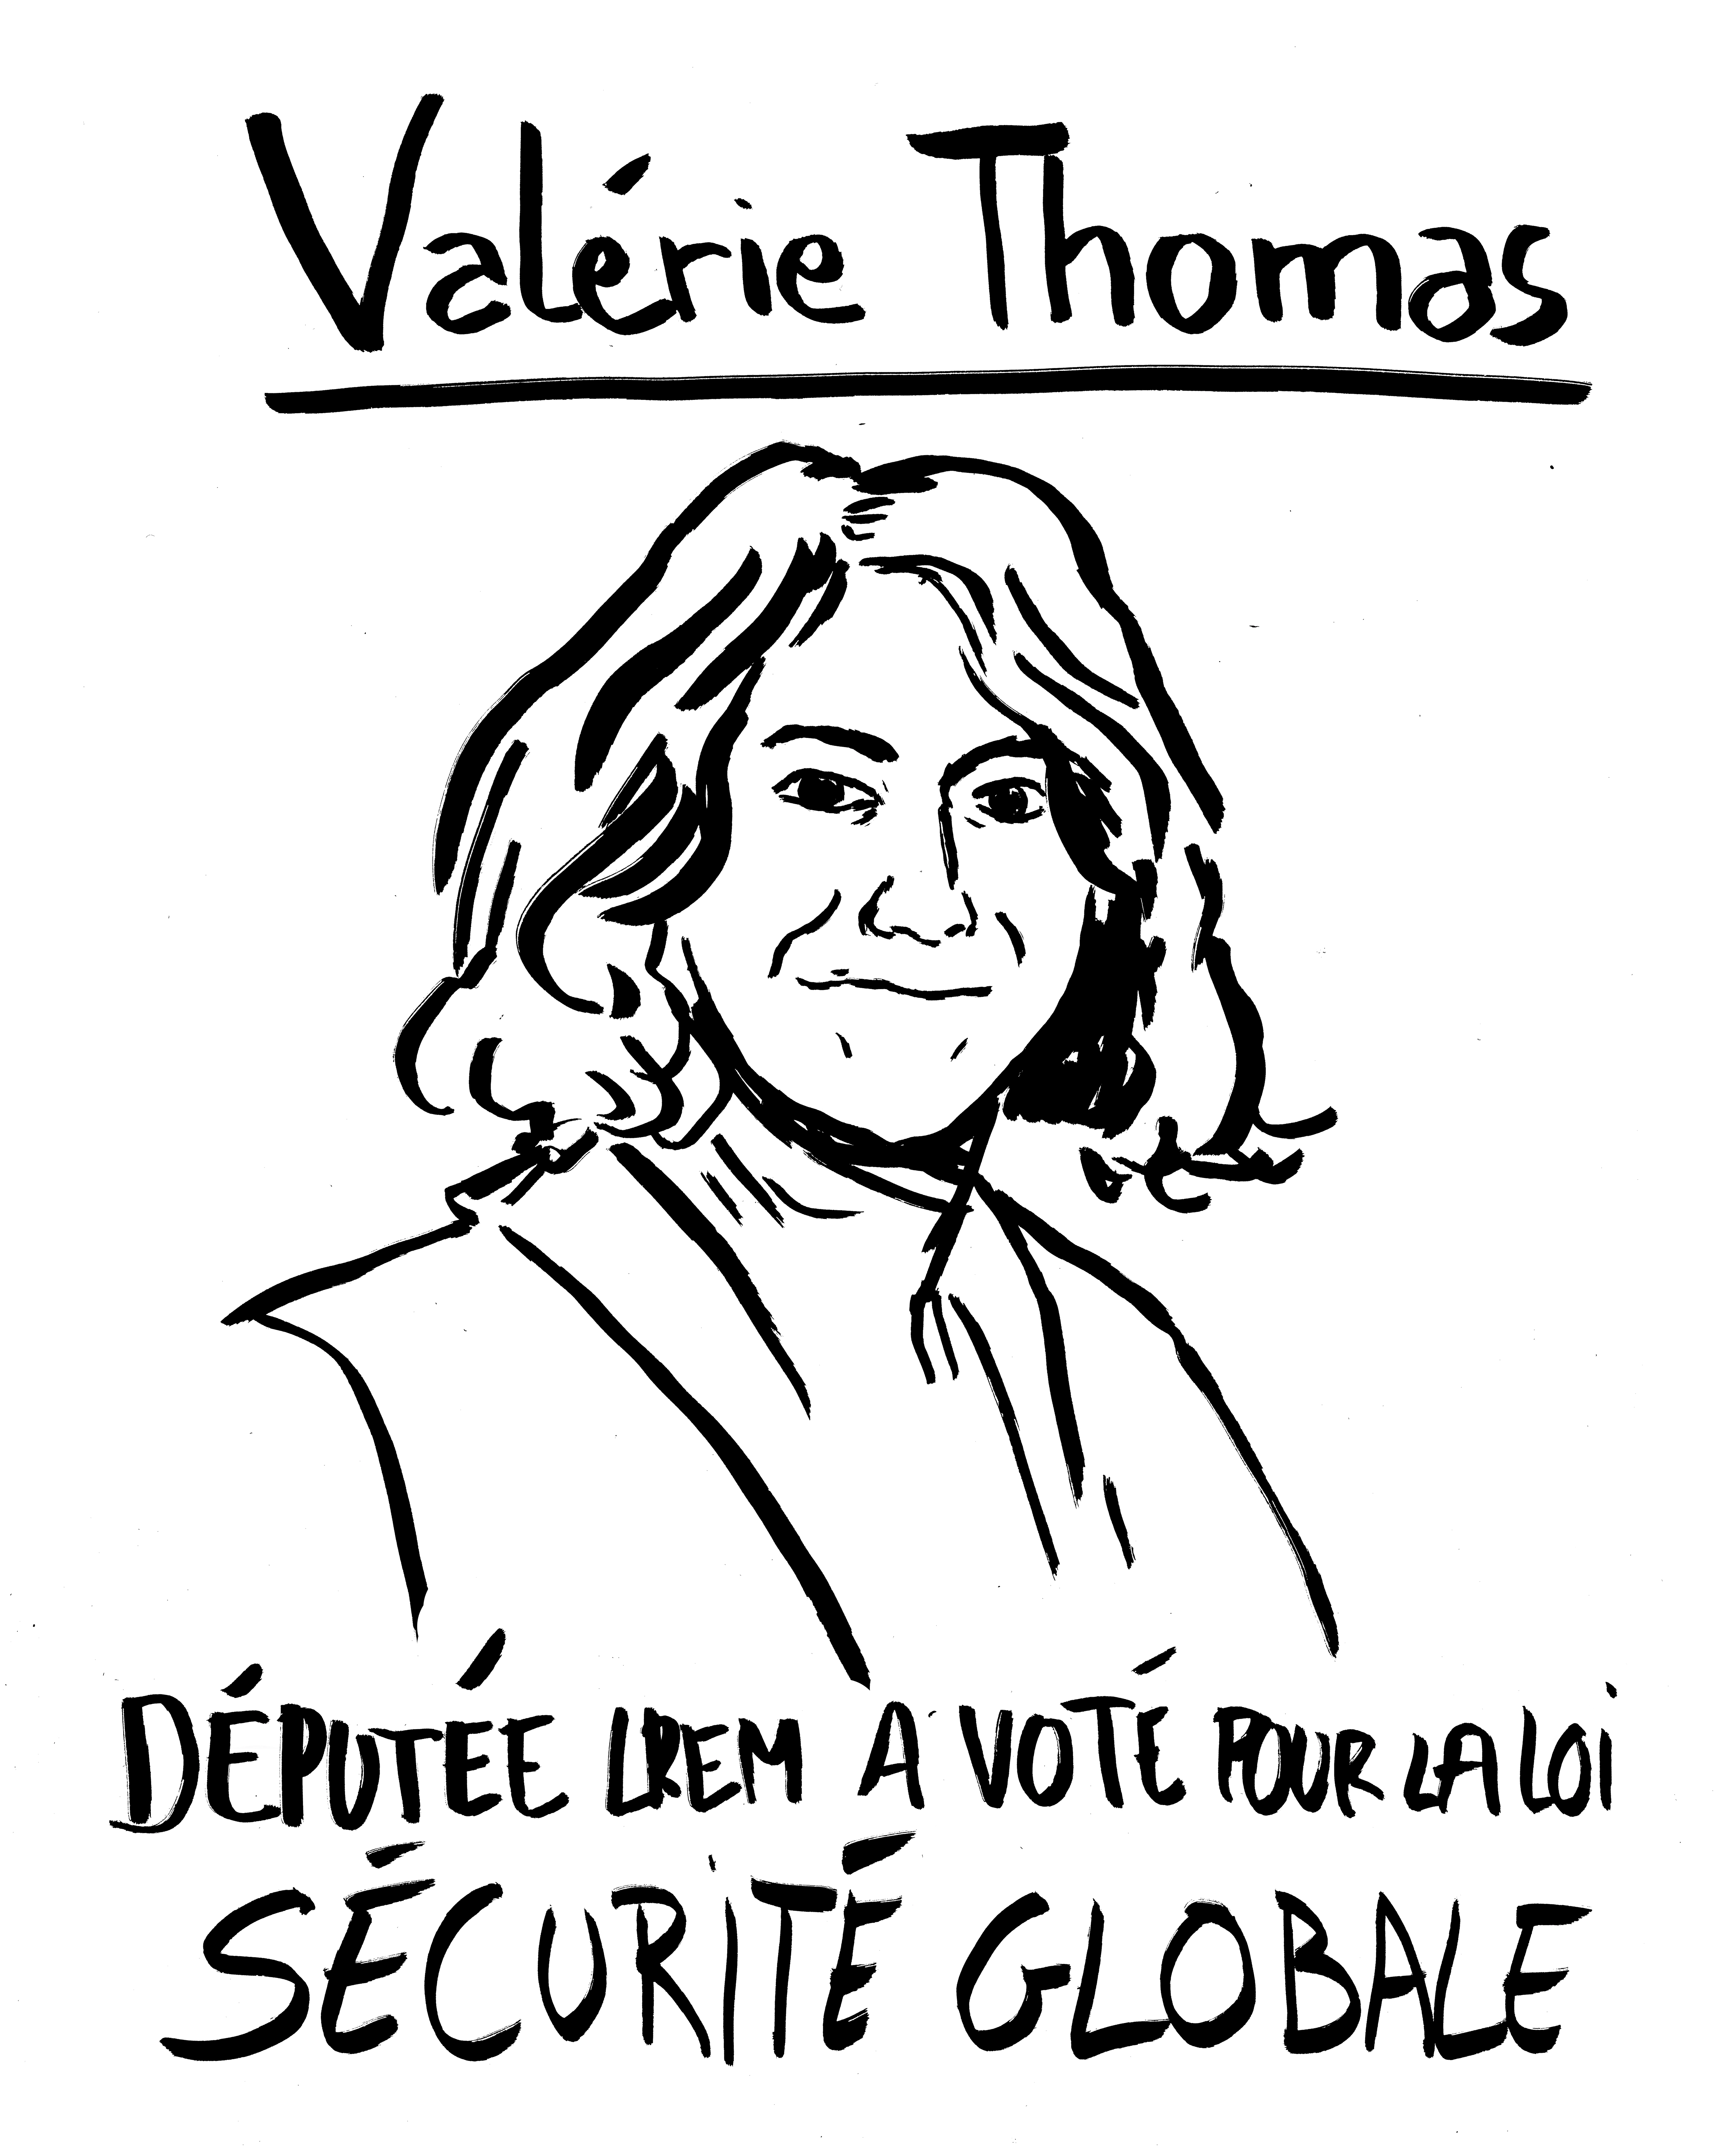 Valérie Thomas
DÉPUTÉE LREM A VOTÉ POUR LA LOI
SÉCURITÉ GLOBALE